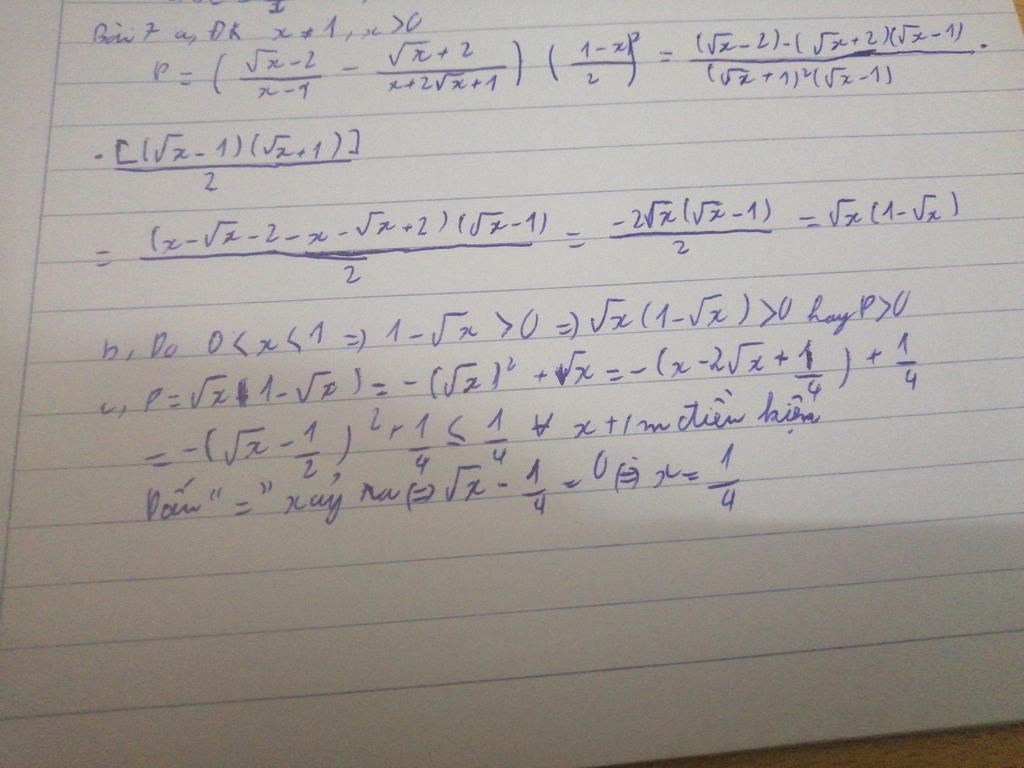 Bài 7 a, ĐK x ≠ 1, x > 0
P = ( (√x - 2)/(x - 1) - (√x + 2)/(x + 2√x + 1) ) ( (1 - x)/2 )² = ((√x - 2) - (√x + 2)(√x - 1))/((√x + 1)²(√x - 1)) .
. [(√x - 1)(√x + 1)]/2
= ((x - √x - 2 - x - √x + 2)(√x - 1))/2 = (-2√x(√x - 1))/2 = √x(1 - √x)
b, Do 0 < x < 1 => 1 - √x > 0 => √x(1 - √x) > 0 hay P > 0
c, P = √x(1 - √x) = -(√x)² + √x = -(x - 2√x + 1/4) + 1/4
= -(√x - 1/2)² + 1/4 ≤ 1/4 ∀ x t/m điều kiện
Dấu "=" xảy ra <=> √x - 1/4 = 0 <=> x = 1/4